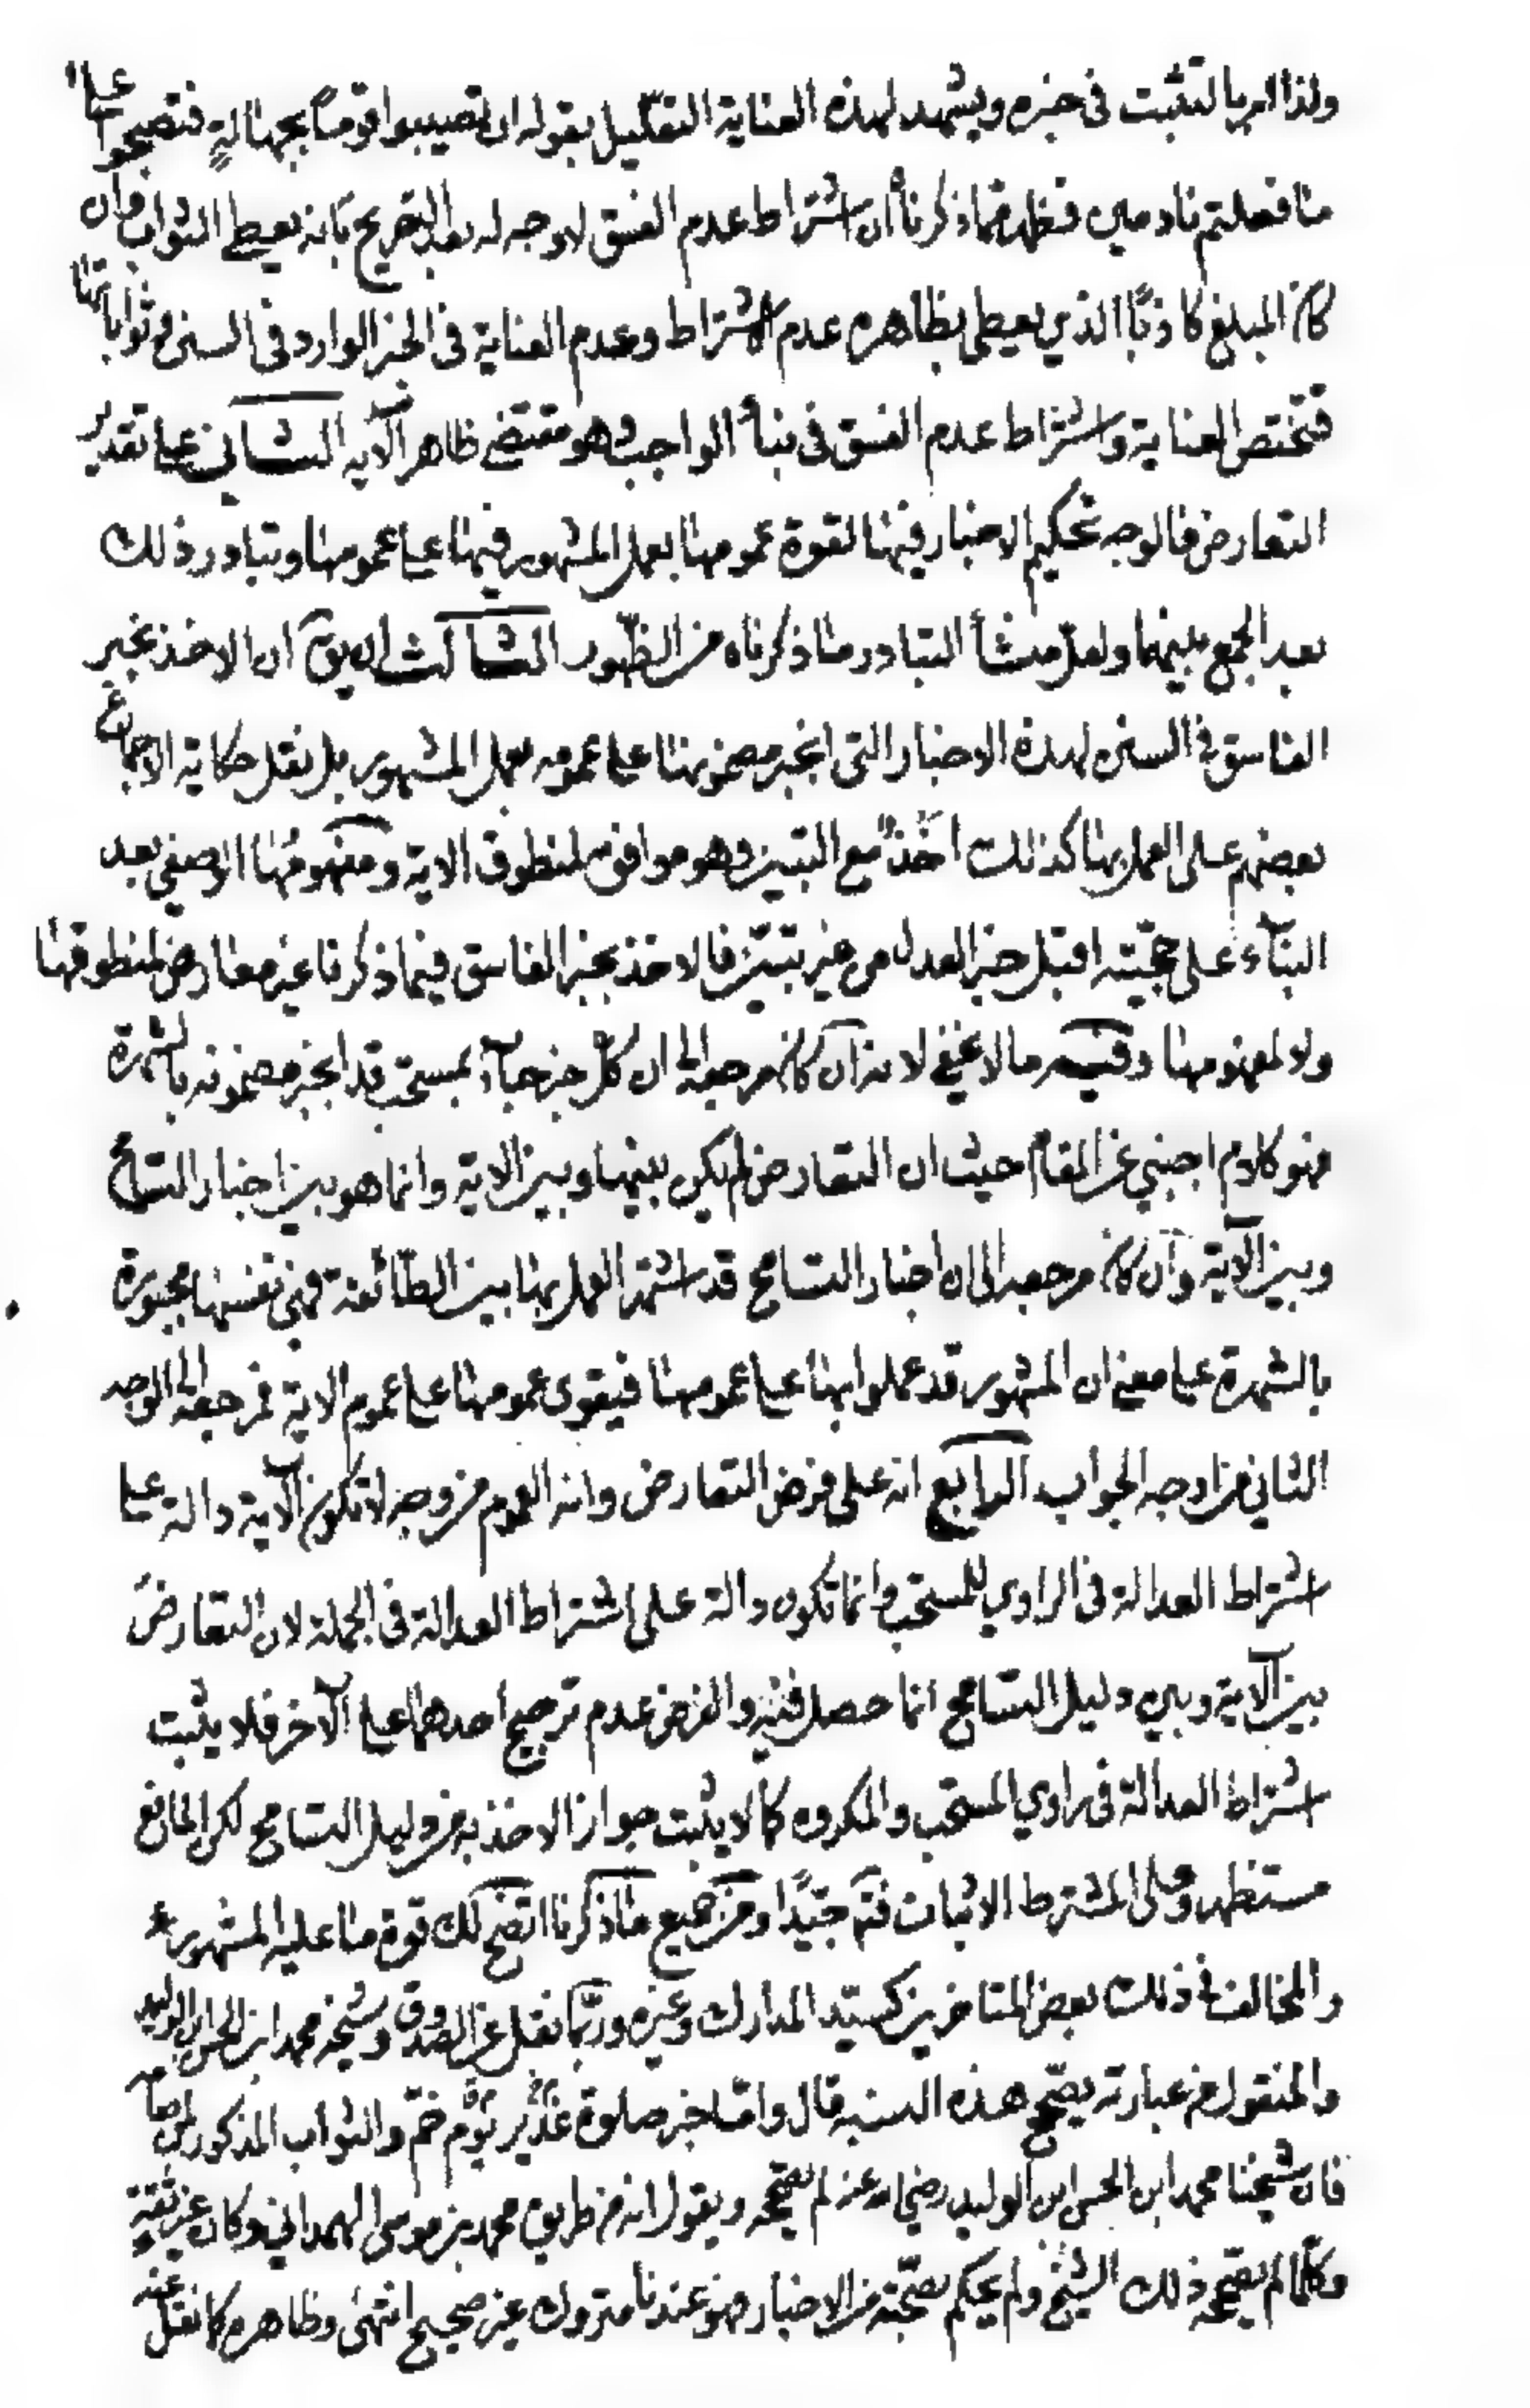 ولذا امر بالتثبت فى خبره ويشهد لهذه العناية التعليل بقوله ان تصيبوا قومًا بجهالةٍ فتصبحوا على
ما فعلتم نادمين فظهر مما ذكرنا أن اشتراط عدم الفسق لا وجه له بعد التصريح بانه يعطى الثواب وان
كان المبلغ كاذبًا الذي يعطى بظاهره عدم الاشتراط وعدم العناية فى الخبر الوارد فى السنن وثواباتها
فتختص العناية واشتراط عدم الفسق فى نبأ الواجب وهو مقتضى ظاهر الآية الثاني على تقدير
التعارض فالوجه تحكيم الاخبار فيها لقوة عمومها بعمل المشهور فيها على عمومها وتبادر ذلك
بعد الجمع بينهما ولعل منشأ التبادر ما ذكرناه من الظهور الثالث ان يق ان الاخذ بخبر
الفاسق فى السنن لهذه الاخبار التى انجبر مضمونها على عمومه بعمل المشهور بل نقل حكاية الاجماع
بعضهم على العمل بها كذلك اخذ مع التبين وهو موافق لمنطوق الاية ومفهومها الوصفي بعد
البناء على حجيته اقبل خبر العدل من غير تبين فالاخذ بخبر الفاسق فيما ذكرنا غير معارض لمنطوقها
ولا لمفهومها وفيه ما لا يخفى لانه ان كان مرجعه الى ان كل خبر جاء بمستحب قد انجبر مضمونه بالشهرة
فهو كلام اجنبي عن المقام حيث ان التعارض لم يكن بينها وبين الاية وانما هو بين اخبار التسامح
وبين الآية وان كان مرجعه الى ان اخبار التسامح قد اشتهر العمل بها بين الطائفة فهى نفسها مجبورة
بالشهرة على معنى ان المشهور قد عملوا بها على عمومها فيقوى عمومها على عموم الاية فمرجعه الى الوجه
الثاني من اوجه الجواب الرابع انه على فرض التعارض وانه العموم من وجه لا تكون الآية دالة على
اشتراط العدالة فى الراوي للمستحب وانما تكون دالة على اشتراط العدالة فى الجملة لان التعارض
بين الآية وبين دليل التسامح انما حصل فيه والفرض عدم ترجيح أحدهما على الآخر فلا يثبت
اشتراط العدالة فى راوي المستحب والمكروه كما لا يثبت جواز الاخذ به من دليل التسامح لكن المانع
مستظهر وعلى المشترط الاثبات فتم جيّدًا ومن جميع ما ذكرنا اتضح لك قوة ما عليه المشهور
والمخالف فى ذلك بعض المتاخرين كسيّد المدارك وغيره وربما نقل عن الصدوق وشيخه محمد ابن الحسن ابن الوليد
والمنقول من عبارته يصحح هذه النسبة قال وامّا خبر صلوة غدير يوم خمّ والثواب المذكور لمن صامه
فان شيخنا محمد ابن الحسن ابن الوليد رضي الله عنه لم يصححه ويقول انه من طريق محمد بن موسى الهمداني وكان غير ثقةٍ
وكلما لم يصححه ذلك الشيخ ولم يحكم بصحّته من الاخبار فهو عندنا متروك غير صحيح انتهى وظاهره كما نقل عنه